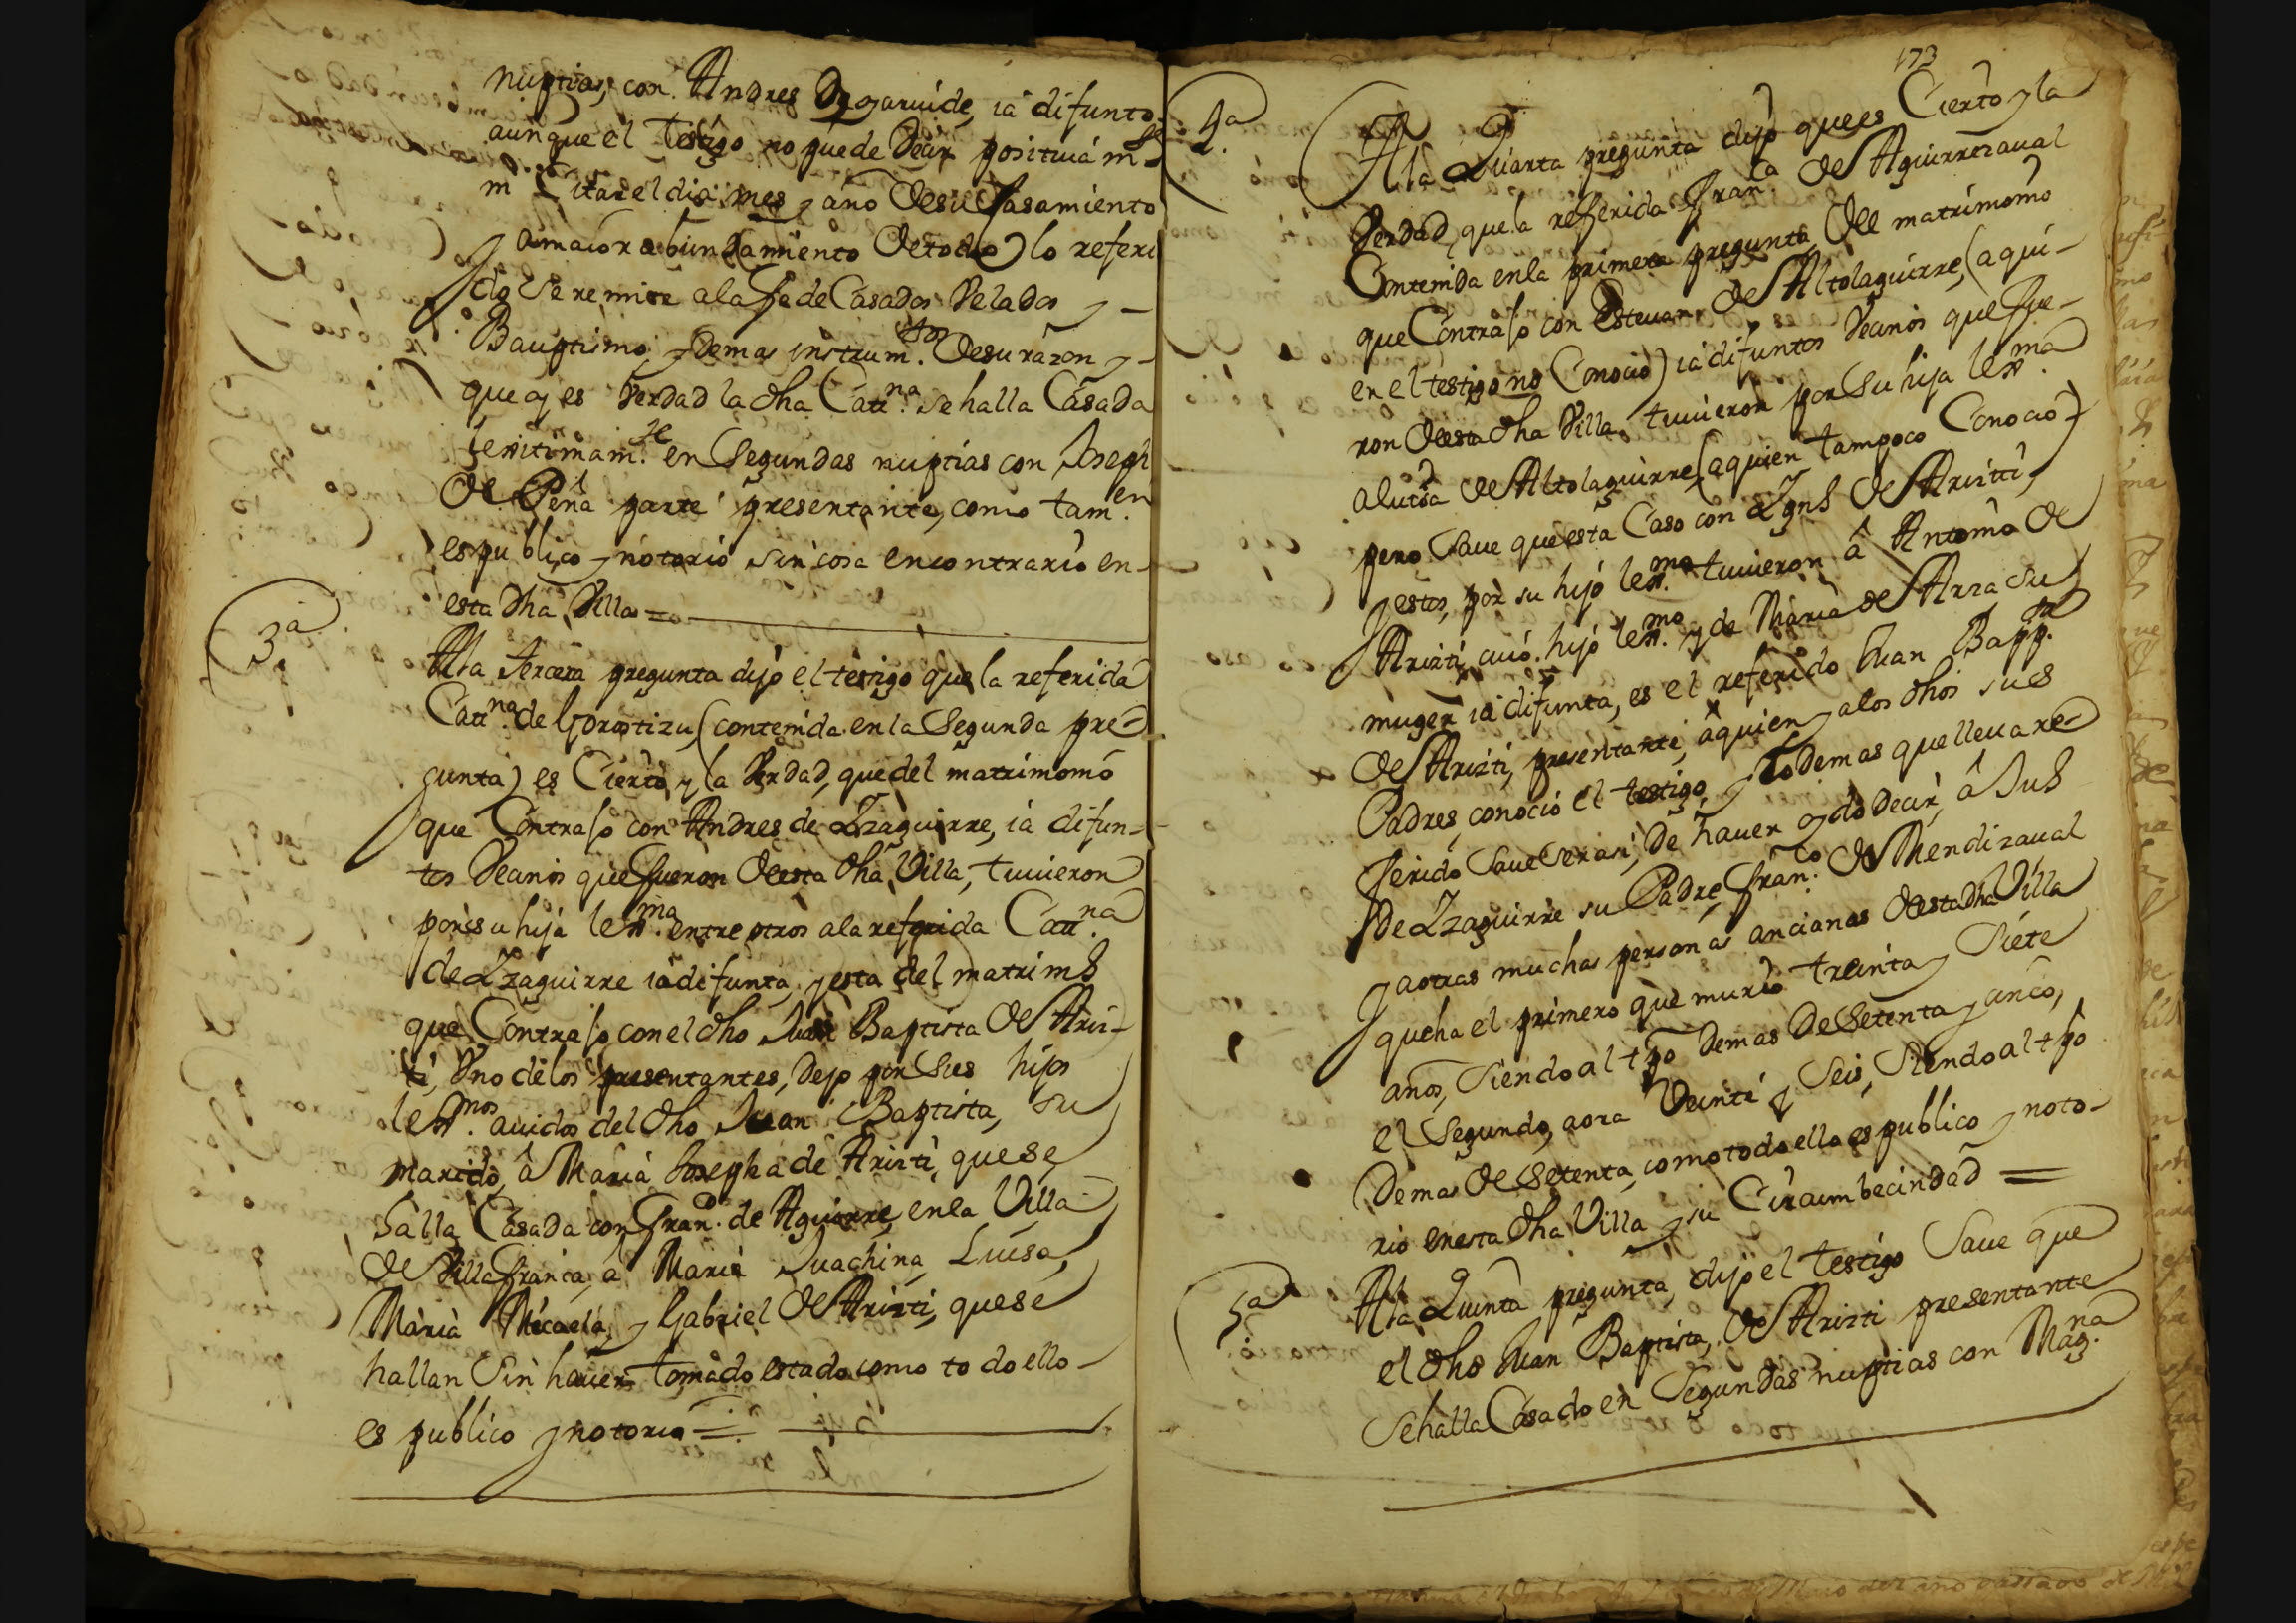 nuptias, con Andres Ygaruide, ia difunto
aunque el testigo no puede Decir positiuam.te
Citar el dia mes, y año Desu Casamiento
y amaior abundamiento Detodo lo referi
do Se remite ala fe de Casados Velados y
Bauptismo, y Demas instrum.tos Desu razon y
que es Verdad la dha Catt.na se halla Casada
lexitimam.te en Segundas nuptias con Joseph
De Peña parte presentante, como tam.en
es publico y notorio sin cosa en contrario en
esta dha Villa =
3.a
Ala tercera pregunta dijo el testigo que la referida
Catt.na de Gorostizu, (contenida en la Segunda pre=
gunta) es Cierto, y la Verdad, que del matrimonio
que Contrajo con Andres de Yzaguirre, ia difun-
tos Vecinos que fueron Deesta dha Villa, tuuieron
por su hija lex.ma entre otros ala referida Catt.na
de Yzaguirre ia difunta, y esta del matrim.o
que Contrajo con el dho Juan Baptista De Aris-
ti, Vno delos presentantes, Dejo por Sus hijos
lex.mos auidos del dho Juan Baptista, su
marido, â Maria Josepha de Aristi, que se
halla Casada con Fran.co de Aguirre, en la Villa
De Villafranca, a Maria Juachina, Luisa,
Maria Micaela, y Gabriel De Aristi, que se
hallan Sin hauer tomado estado como todo ello
es publico y notorio =
173
4.a
Ala Quarta pregunta dijo que es Cierto y la
Verdad, que la referida Fran.ca De Aguirrezaual
Contenida en la primera pregunta Del matrimonio
que Contrajo con Esteuan De Altolaguirre, (a qui-
en el testigo no Conocio) ia difuntos Vecinos que fue-
ron Deesta dha Villa, tuuieron por Su hija lex.ma
a Luisa De Altolaguirre, (a quien tampoco Conocio)
pero Saue que esta Caso con Ygn.o De Aristi,
y estos, por su hijo lex.mo tuuieron â Antonio De
Aristi, cuio hijo lex.mo y de Maria De Arza su
muger ia difunta, es el referido Juan Bapp.ta
De Aristi, presentante, aquien y alos dhos sus
Padres, conocio el testigo, y lo demas que lleua re-
ferido Saue Ser asi, De hauer oydo Decir, â Juº
De Yzaguirre su Padre, Fran.co De Mendizaual
y a otras muchas personas ancianas Deesta dha Villa
que ha el primero que murio treinta y Siete
años, Siendo al tpo Demas De Setenta y cinco,
el Segundo, aora Veinti y Seis, Siendo al tpo
Demas De Setenta, como todo ello es publico y noto-
rio en esta dha Villa y su Circumbecindad =
5.a
Ala Quinta pregunta, dijo el testigo Saue que
el dho Juan Baptista, De Aristi presentante
se halla Casado en Segundas nuptias con Mag.na